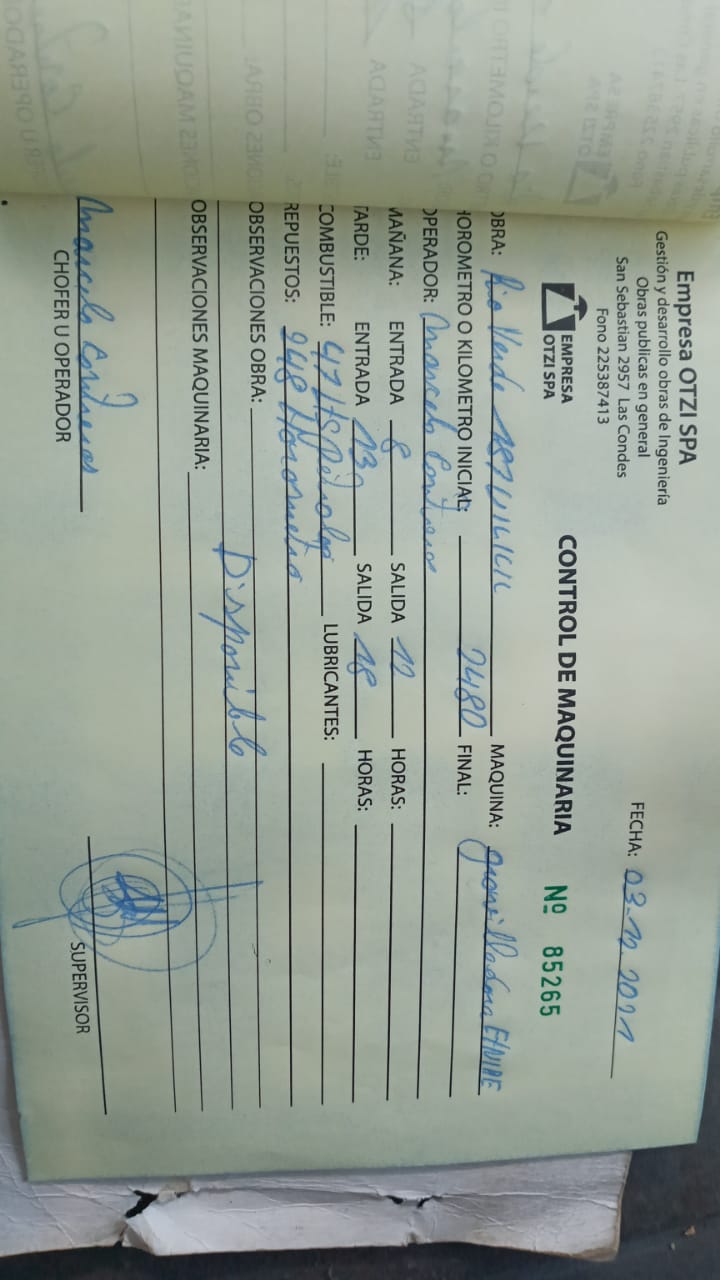 Empresa OTZI SPA
Gestión y desarrollo obras de Ingeniería
Obras publicas en general
San Sebastian 2957 Las Condes
Fono 225387413
EMPRESA
OTZI SPA
FECHA: 03-12.2021
CONTROL DE MAQUINARIA
Nº 85265
OBRA: Rio Verde MAQUINA: gravilladora
HOROMETRO O KILOMETRO INICIAL: 2480 FINAL:
OPERADOR: Marcelo Contreras
MAÑANA: ENTRADA 8 SALIDA 12 HORAS:
TARDE: ENTRADA 13 SALIDA 18 HORAS:
COMBUSTIBLE: 47 Lts Petroleo LUBRICANTES:
REPUESTOS: 248 Horometro
OBSERVACIONES OBRA:
Disponible
OBSERVACIONES MAQUINARIA:
Marcelo Contreras
CHOFER U OPERADOR
SUPERVISOR